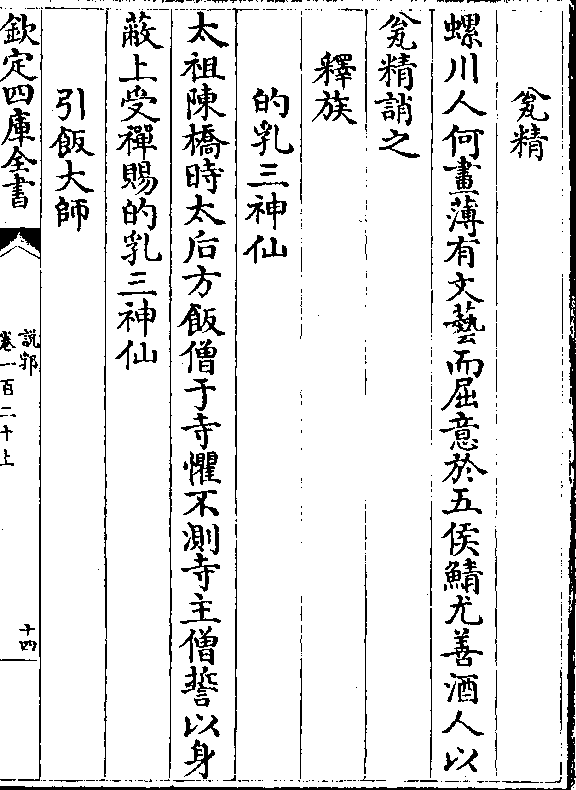 瓮精
螺川人何畫薄有文藝而屈意於五侯鯖尤善酒人以
瓮精誚之
釋族
的乳三神仙
太祖陳橋時太后方飯僧于寺懼不測寺主僧誓以身
蔽上受禪賜的乳三神仙
引飯大師
欽定四庫全書
說郛
卷一百二十上
十四